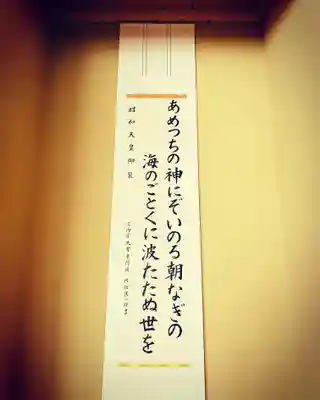 あめつちの神にぞいのる朝なぎの
海のごとくに波たたぬ世を
昭和天皇御製